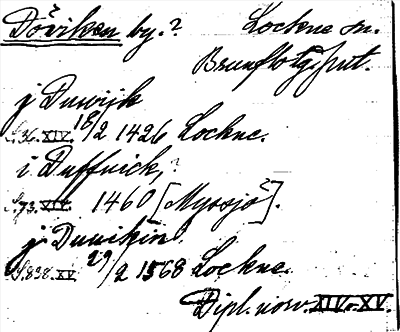 Döviken by.? Lockne sn.
Brunflo tgspr.
j Duwijk
S. 36. XIV. 18/2 1426 Lockne.
i Duffuick,?
S. 73. XIV. 1460 [Myssjö?].
j Duuikin
S. 838. XV. 29/2 1568 Lockne.
Dipl. norv. XIV-XV.